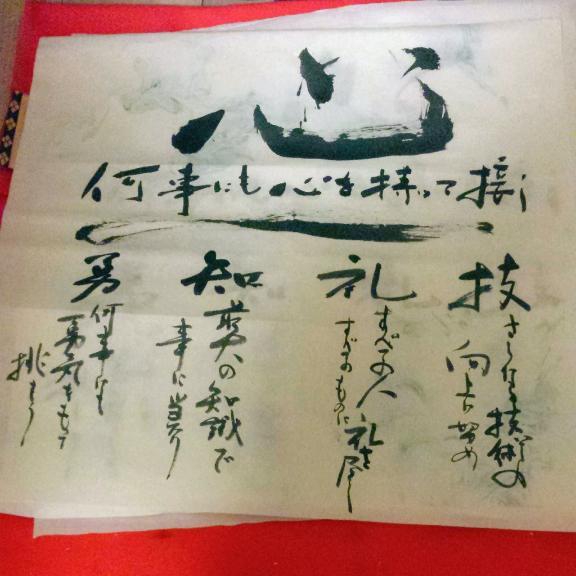 心
何事にも心を持って接し
技
さらなる技術の
向上に努め
礼
すべての人
すべてのものに
礼を尽し
知
最大の知識で
事に当り
勇
何事にも
勇気をもって
挑もう